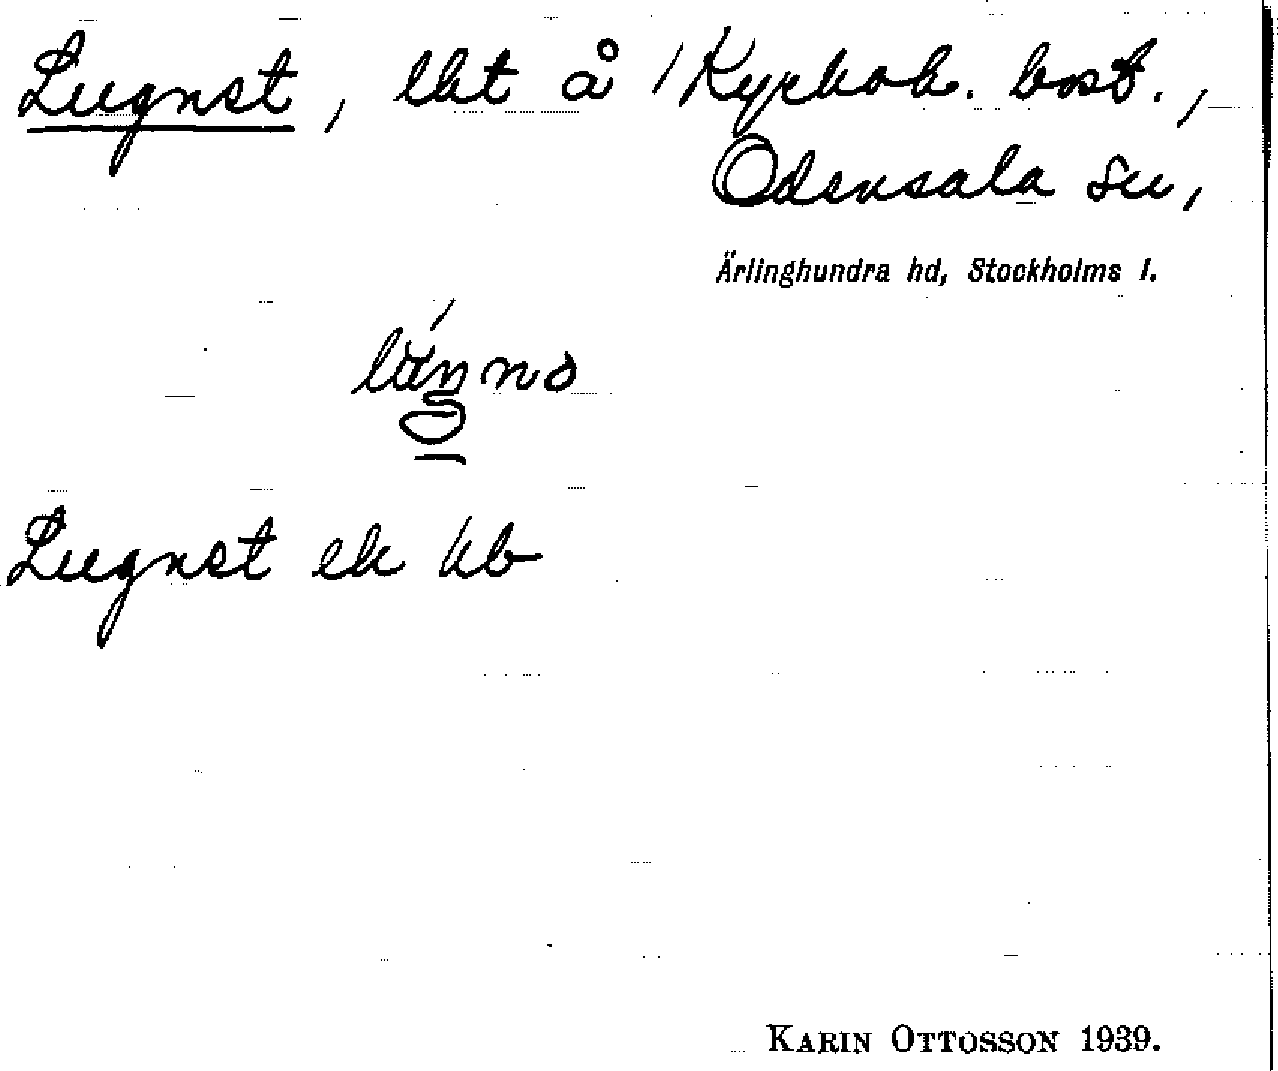 Lugnet, lht å Kyrkoh. bost.,
Odensala sn,
Ärlinghundra hd, Stockholms l.
Lugnet ek kb
KARIN OTTOSSON 1939.